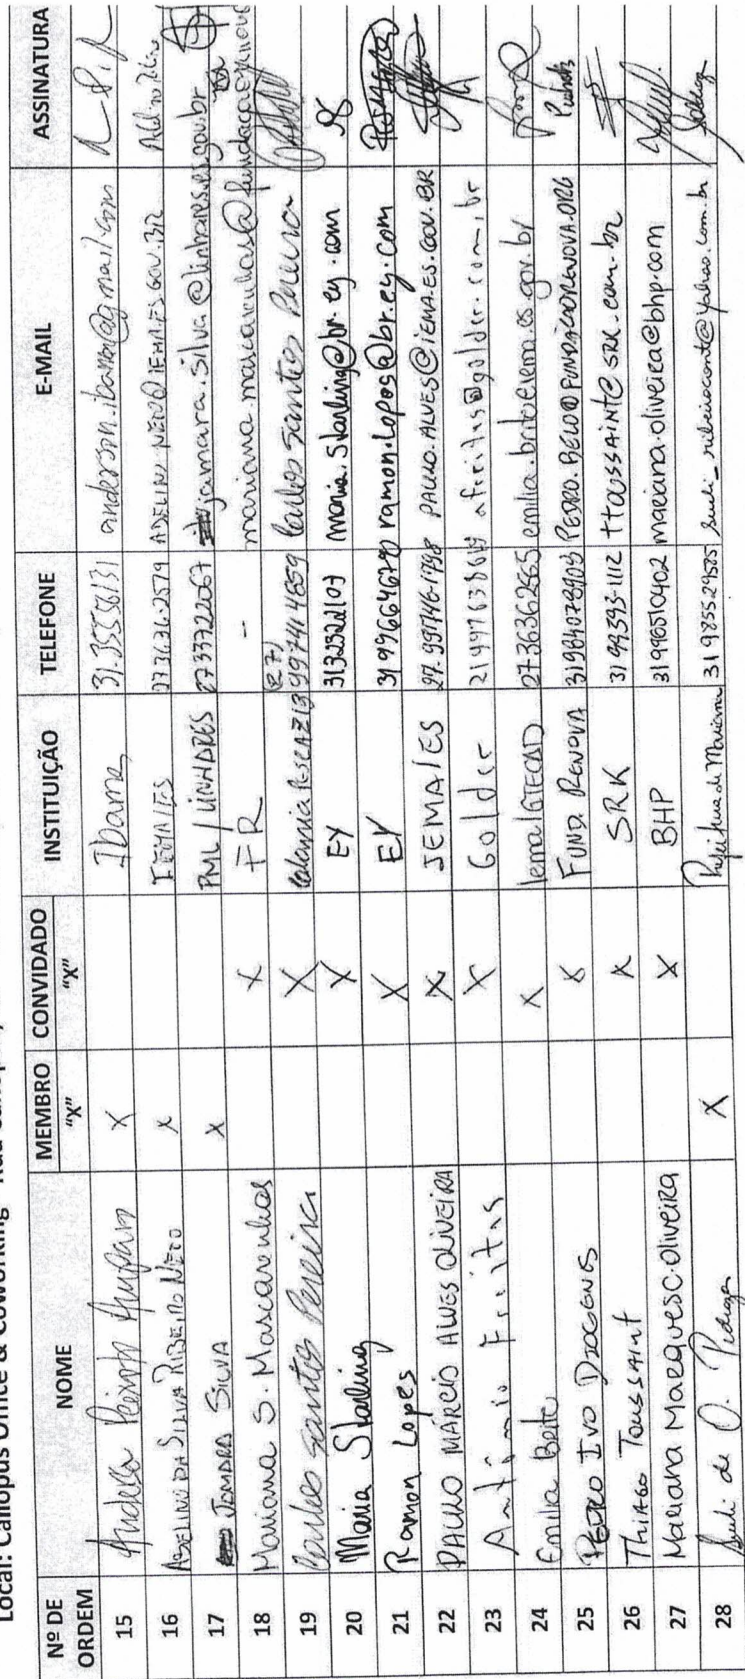 Local: Calliopus Office & Coworking
Nº DE ORDEM NOME MEMBRO "X" CONVIDADO "X" INSTITUIÇÃO TELEFONE E-MAIL ASSINATURA
15 Peixoto X Ibama 31.35556131 anderson.ibama@gmail.com
16 ADELINO DA SILVA RIBEIRO NETO X IEMA/ES 27 3636.2579 ADELINO.NETO@IEMA.ES.GOV.BR
17 JAMARA SILVA X PML/LINHARES 2733722067 jamara.silva@linhares.es.gov.br
18 Mariana S. Mascarenhas X FR - mariana.mascarenhas@fundacaorenova
19 Carlos Santos Pereira X Colonia Pesca Z13 (27) 997414859 Carlos Santos Pereira
20 Maria Starling X EY 3132322107 maria.starling@br.ey.com
21 Ramon Lopes X EY 31 996646790 ramon.lopes@br.ey.com
22 PAULO MARCIO ALVES OLIVEIRA X IEMA/ES 27.99746-1798 PAULO.ALVES@IEMA.ES.GOV.BR
23 Antônio Freitas X Golder 21997638617 afreitas@golder.com.br
24 Emilia Brito X Iema/GTECAD 2736362565 emilia.brito@iema.es.gov.br
25 PEDRO IVO DIOGENES X FUND. RENOVA 31984078903 PEDRO.BELO@FUNDACAORENOVA.ORG
26 THIAGO TOUSSAINT X SRK 31 99393-1112 ttoussaint@srk.com.br
27 Mariana Marques C. Oliveira X BHP 31 998510402 mariana.oliveira@bhp.com
28 Sueli de O. X Prefeitura de Mariana 31 985529585 sueli_ribeirocont@yahoo.com.br